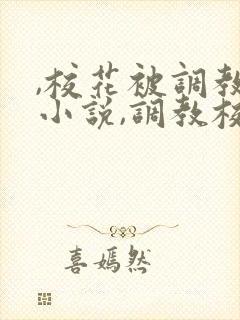 ,校花被調教
小说,調教校
喜嫣然